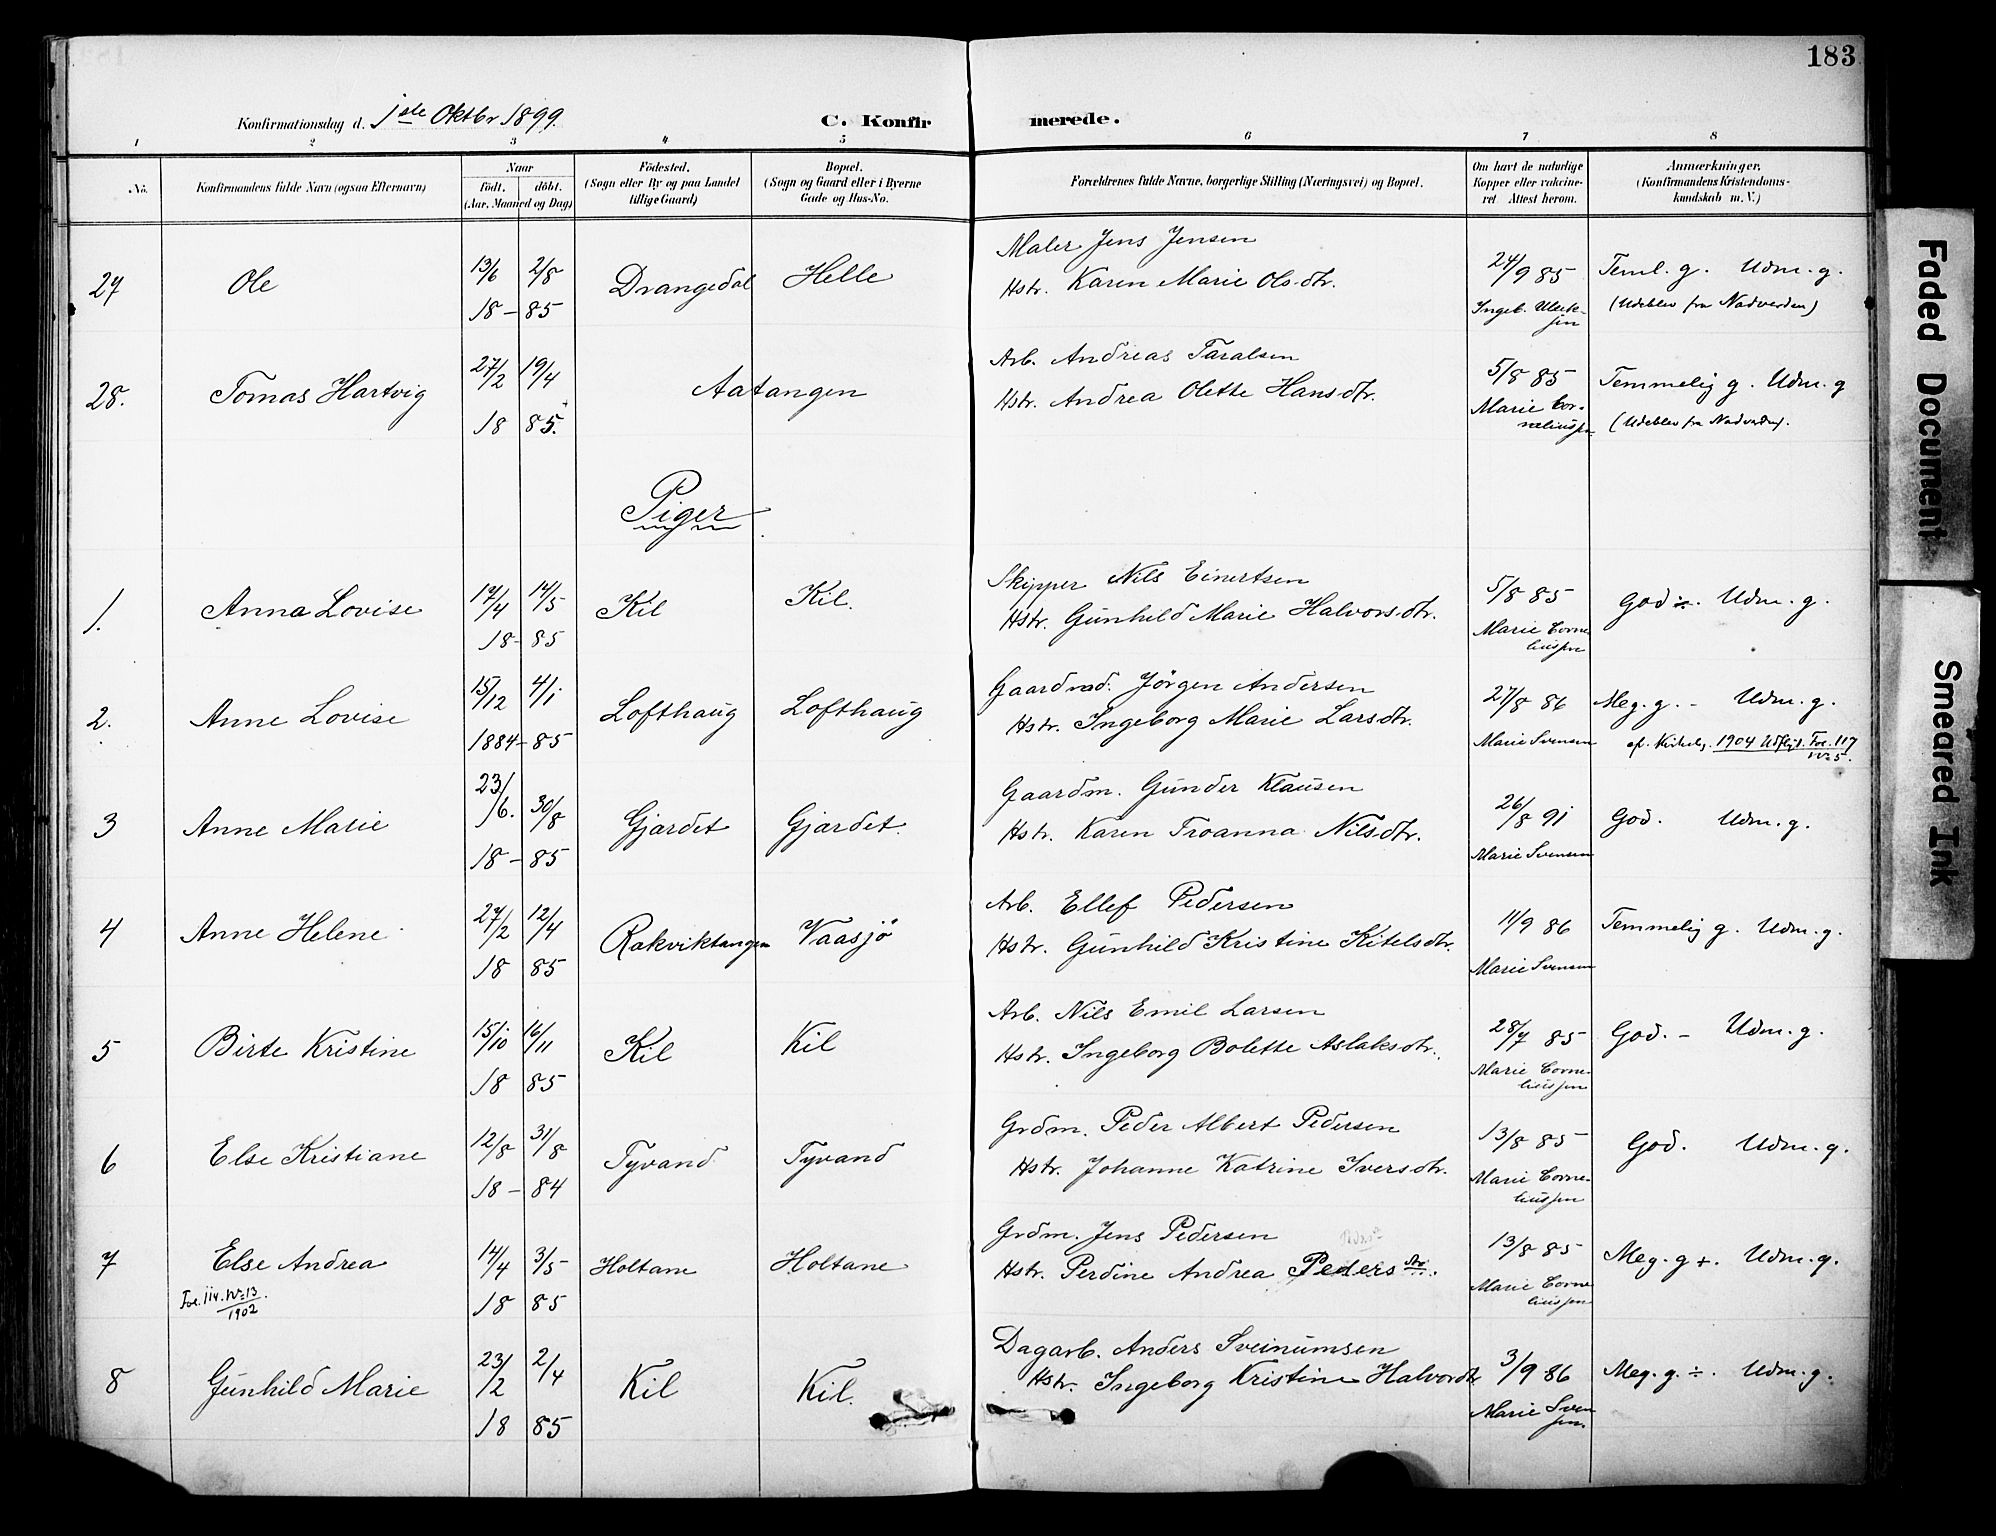 183
Konfirmationsdag d. 1ste Oktbr 1899.
C. Konfirmerede.
1 2 3 4 5 6 7 8
No.
Konfirmandens fulde Navn (ogsaa Efternavn)
Naar
født. døbt.
(Aar, Maaned og Dag)
Födested.
(Sogn eller By og paa Landet
tillige Gaard)
Bopæl.
(Sogn og Gaard eller i Byerne
Gade og Hus-No.
Forældrenes fulde Navne, borgerlige Stilling (Næringsvei) og Bopæl.
Om havt de naturlige
Kopper eller vakcine-
ret. Attest herom.
Anmærkninger,
(Konfirmandens Kristendoms-
kundskab m. V.)
27 Ole 13/6 2/8 18-85 Drangedal Helle
Maler Jens Jensen
Hstr. Karen Marie Olsdtr.
24/9 85
Ingeb. Ulrik-
sen
Teml. g. Udm. g.
(Udeblev fra Nadverden)
28. Tomas Hartvig 27/2 19/4 18 85. Aatangen
Arb. Andreas Taralsen
Hstr. Andrea Olette Hansdtr.
5/8 85
Marie Cor-
neliussen
Temmelig g. Udm. g
(Udeblev fra Nadverden).
Piger
1. Anna Lovise 17/4 14/5 18-85 Kil Kil.
Skipper Nils Einertsen
Hstr. Gunhild Marie Halvorsdtr.
5/8 85
Marie Corne-
liussen
God ÷. Udm. g.
2. Anne Lovise 15/12 4/1 1884-85 Lofthaug Lofthaug
Gaardmd. Jörgen Andersen
Hstr. Ingeborg Marie Larsdtr.
27/8 86
Marie Svensen
Meg. g. - Udm. g.
1904 Udflyt. Fol. 117
No 5.
3 Anne Marie 23/6. 30/8 18-85 Gjærdet Gjærdet.
Gaardm. Gunder Klausen
Hstr. Karen Troanna Nilsdtr.
26/8 91
Marie Svensen
God. Udm. g.
4 Anne Helene 27/2 12/4 18 85 Rakviktangen Vaasjö
Arb. Ellef Pedersen
Hstr. Gunhild Kristine Kitelsdtr.
11/9 86
Marie Svensen
Temmelig g. Udm. g.
5 Birte Kristine 15/10 16/11 18 85 Kil Kil
Arb. Nils Emil Larsen
Hstr. Ingeborg Bolette Aslaksdtr.
28/7 85
Marie Corne-
liussen
God. - Udm. g.
6 Else Kristiane 12/8 31/8 18-84 Tyvand Tyvand
Grdm. Peder Albert Pedersen
Hstr. Johanne Katrine Iversdtr.
13/8 85
Marie Corne-
liussen
God. Udm. g.
7 Else Andrea 14/4 3/5 18 85 Holtane Holtane
Fol. 114. No 13.
1902
Grdm. Jens Pedersen
Hstr. Perdine Andrea Pedersdtr.
13/8 85
Marie Corne-
liussen
Meg. g +. Udm. g.
8 Gunhild Marie 23/2 2/4 18 85 Kil Kil.
Dagarb. Anders Sveinumsen
Hstr. Ingeborg Kristine Halvordtr
3/9 86
Marie Sven
sen
Meg. g. ÷. Udm. g.
Faded Document
Smeared Ink